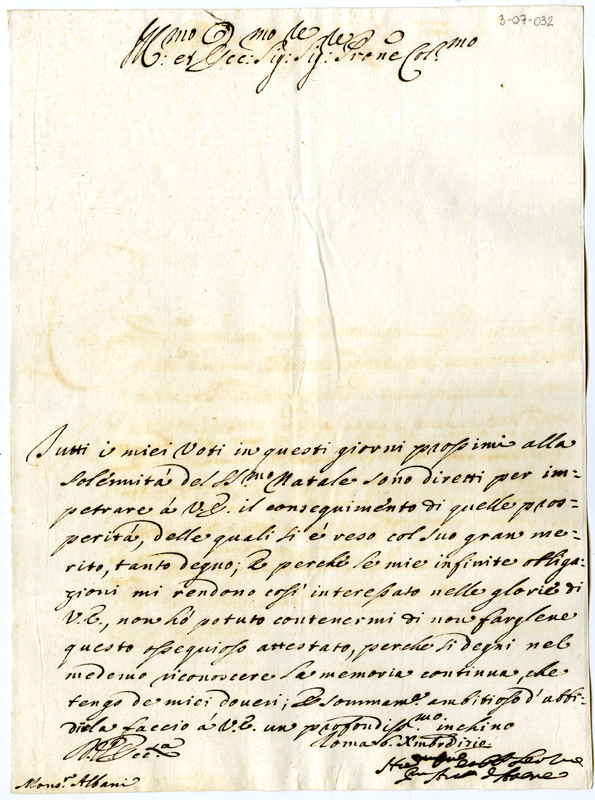 3-07-032
Ill:mo et Ecc:mo Sig:le Sig:le Prone Col:mo
Tutti i miei Voti in questi giorni prossimi alla
Solennità del SSmo Natale sono diretti per im=
petrare à V.E. il conseguimento di quelle pros=
perità, delle quali si è reso col suo gran me=
rito, tanto degno; E perche le mie infinite obliga=
zioni mi rendono così interessato nelle glorie di
V.E., non hò potuto contenermi di non fargliene
questo ossequioso attestato, perche si degni nel
medemo riconoscere la memoria continua, che
tengo de miei doveri; E sommame. ambitioso d'ubbi-
dirla faccio à V.E. un profondiss:mo inchino
Roma 6. Xmbre
Mons.r Albani